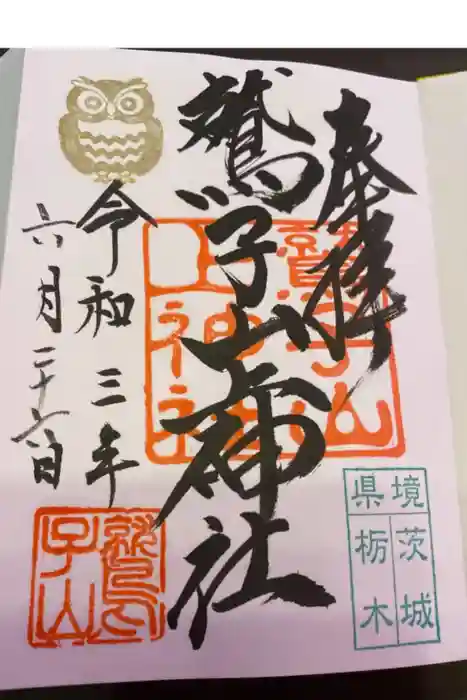 奉拝
鷲子山上神社
令和三年
六月二十六日
鷲子山
上神社
鷲
子山
県境
茨城
栃木